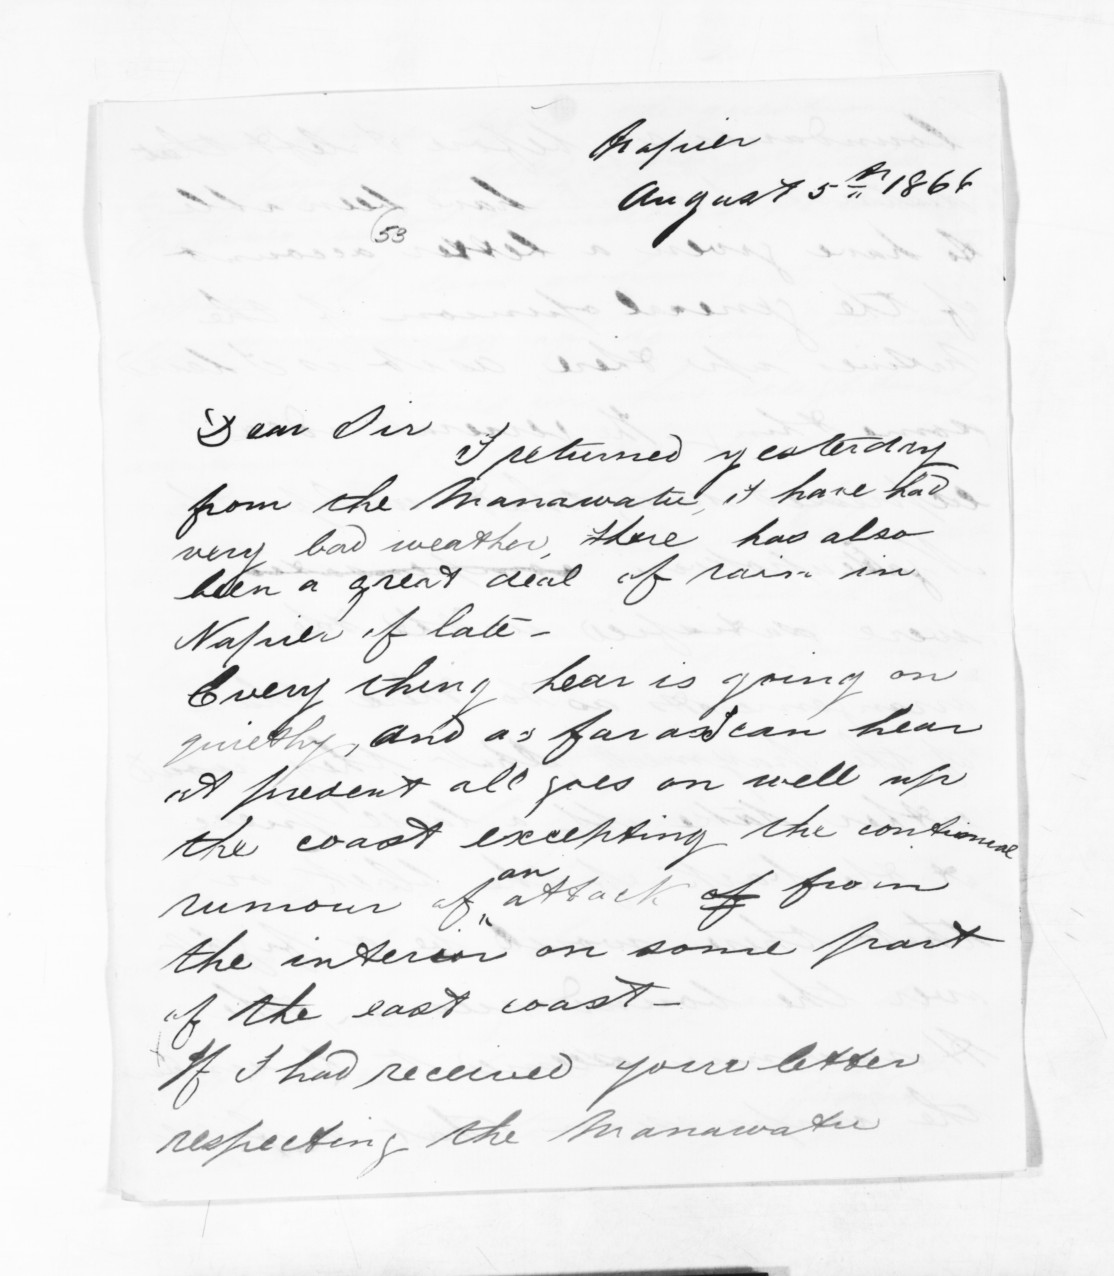 Napier
August 5th 1866
53
Dear Sir
I returned yesterday
from the Manawatu, I have had
very bad weather, there has also
been a great deal of rain in
Napier of late -
Every thing hear is going on
quiethy, and as far as I can hear
at present all goes on well up
the coast excepting the contionual
rumour of an attack of from
the interior on some part
of the east coast -
If I had received your letter
respecting the Manawatu